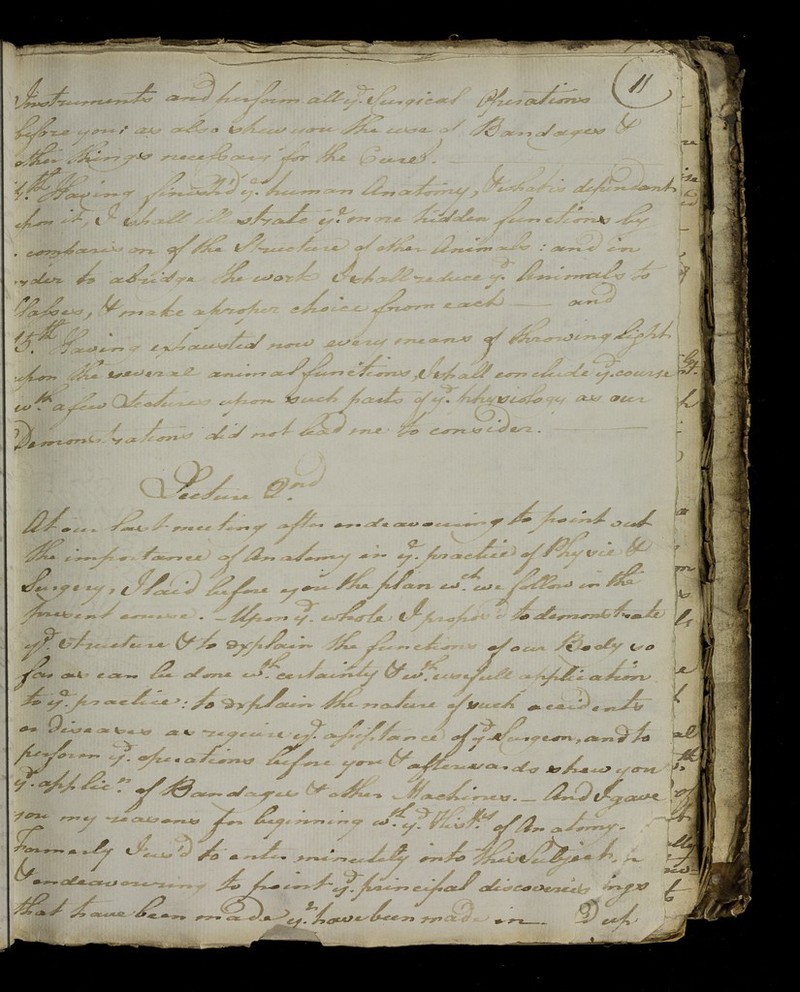 11
Instruments and perform all yͤ. Surgical Operations
before you: as also shew you the use of Bandages &
other things necessary for the Cure. —
4.th Having finish'd yͤ. human Anatomy, & what is dependant
upon it, I shall illustrate yͤ. more hidden functions by
a comparison of the Structure of other Animals: and in
order to abridge the work I shall reduce yͤ. Animals to
Classes, & make a proper choice from each — and
5.th Having exhausted now every means of throwing Light
upon the several animal functions, I shall conclude yͤ. course
wth. a few Lectures upon such parts of yͤ. physiology as our
Demonstrations did not lead me to consider. —
Lecture 2.nd
At our last meeting after endeavouring to point out
the importance of Anatomy in yͤ. practice of Physic &
Surgery, I laid before you the plan wch. we follow in the
present course. – Upon yͤ. whole I propos'd to demonstrate
yͤ. structure & to explain the functions of our Body so
far as can be done wth. certainty & wth. usefull application
to yͤ. practice: to explain the nature of such accidents
or Diseases as require yͤ. assistance of yͤ Surgeon, and to
perform yͤ. operations before you & afterwards shew you
yͤ. applicn. of Bandages & other Machines. – And I gave
you my reasons for beginning wth. yͤ. Histy. of Anatomy.
Formerly I us'd to enter minutely into this Subject,
& endeavouring to point yͤ. principal discoveries
that have been made yͭ. have been made in